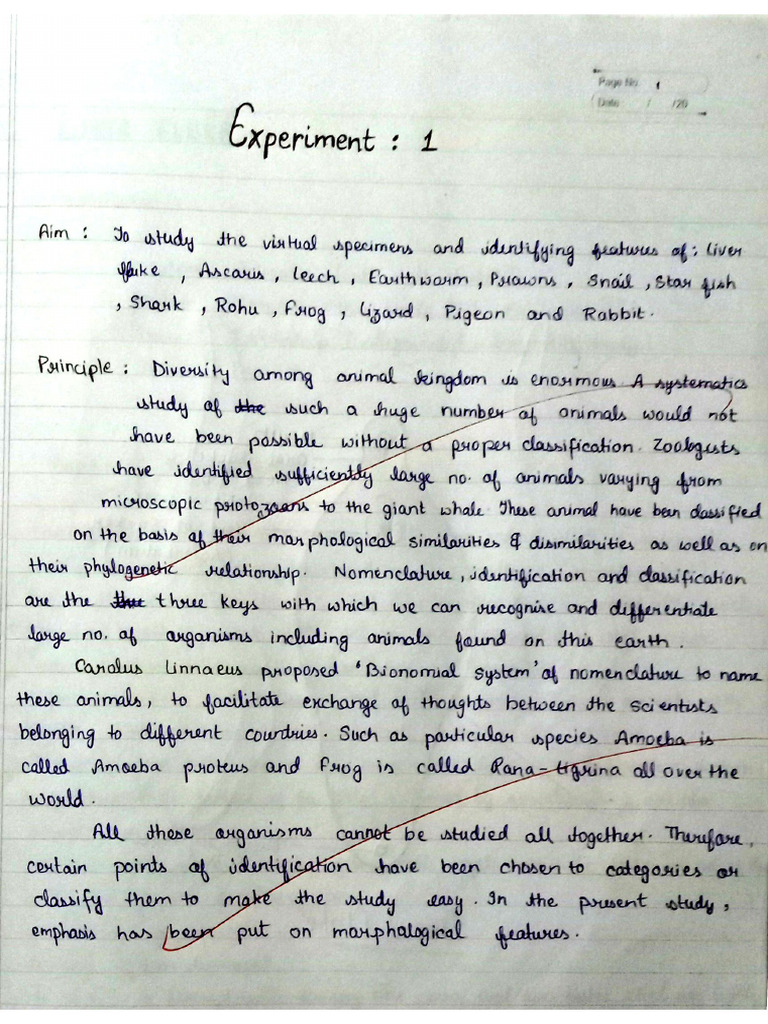 Page No. 1
Date / /20
Experiment : 1
Aim : To study the virtual specimens and identifying features of : Liver
fluke , Ascaris , Leech , Earthworm , Prawns , Snail , Star fish
, Shark , Rohu , Frog , Lizard , Pigeon and Rabbit .
Principle : Diversity among animal kingdom is enormous A systematics
study of the such a huge number of animals would not
have been possible without a proper classification . Zoologists
have identified sufficiently large no. of animals varying from
microscopic protozoans to the giant whale These animal have been classified
on the basis of their morphological similarities & disimilarities as well as on
their phylogenetic relationship . Nomenclature , identification and classification
are the three keys with which we can recognise and differentiate
large no. of organisms including animals found on this earth .
Carolus Linnaeus proposed 'Bionomial System' of nomenclature to name
these animals , to facilitate exchange of thoughts between the scientists
belonging to different countries . Such as particular species Amoeba is
called Amoeba proteus and frog is called Rana-tigrina all over the
world .
All these organisms cannot be studied all together . Therefore ,
certain points of identification have been chosen to categories or
classify them to make the study easy . In the present study ,
emphasis has been put on morphalogical features .